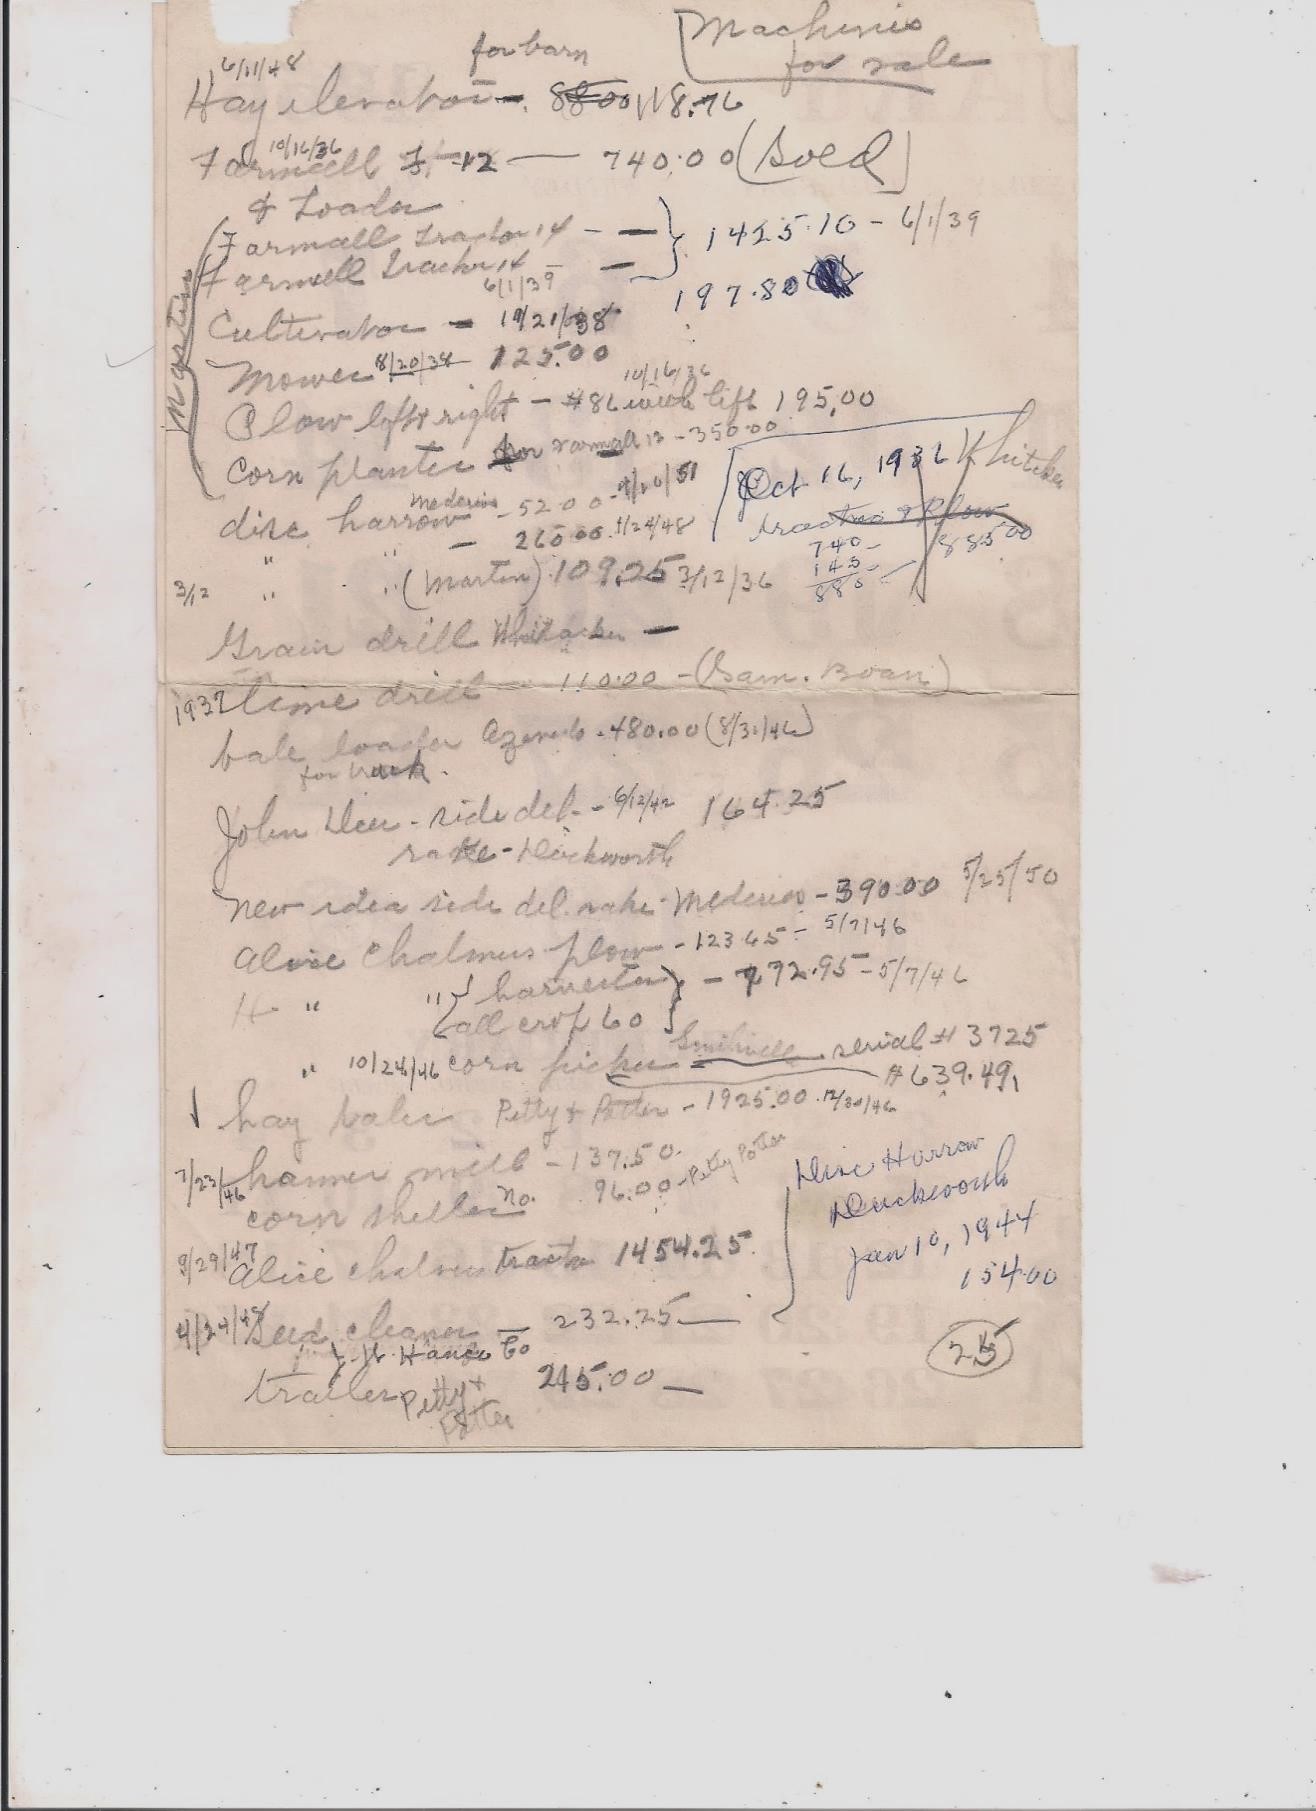 Machines
for sale
for barn
6/11/48
Hay elevator - 88.00 118.76
10/16/36
Farmall F-12 — 740.00 (Sold)
& Loader
Farmall Tractor 14 - - } 1425.10 - 6/1/39
Farmall Tractor 14 -
6/1/39
197.80
Martin
Cultivator - 38
Mower 8/20/38 125.00
10/16/36
Plow left & right - #86 with lift 195.00
Corn planter for Farmall 12 - 350.00
Oct 16, 1936 Whitaker
tractor & Plow
740 -
145 -
885
885 00
disc harrow Mederis - 5200 -
" " - 260.00
3/12 " " (Martin) 109.25 3/12/36
Grain drill Whitaker -
1937 lime drill - 110.00 - (Sam. Boan)
bale loader - 480.00 (8/31/46)
for truck.
John Deere - side del. - 6/12/42 164.25
rake - Duckworth
New idea side del. rake - Mederis - 390.00 5/25/50
Alice Chalmers plow - 123 65 - 5/7/46
" " { harvester } - 72.95 - 5/7/46
{ all crop 60 }
" 10/24/46 corn picker Smithville serial # 3725
# 639.49
hay baler Petty & Potter - 1925.00 12/30/46
7/23/46 hammer mill - 137.50
corn sheller no. 96.00 - Petty Potter
Disc Harrow
Duckworth
Jan 10, 1944
154.00
9/29/47 Alice Chalmers tractor 1454.25
4/24/48 Seed cleaner - 232.25 —
Co
trailer Petty & 245.00 —
Potter
25